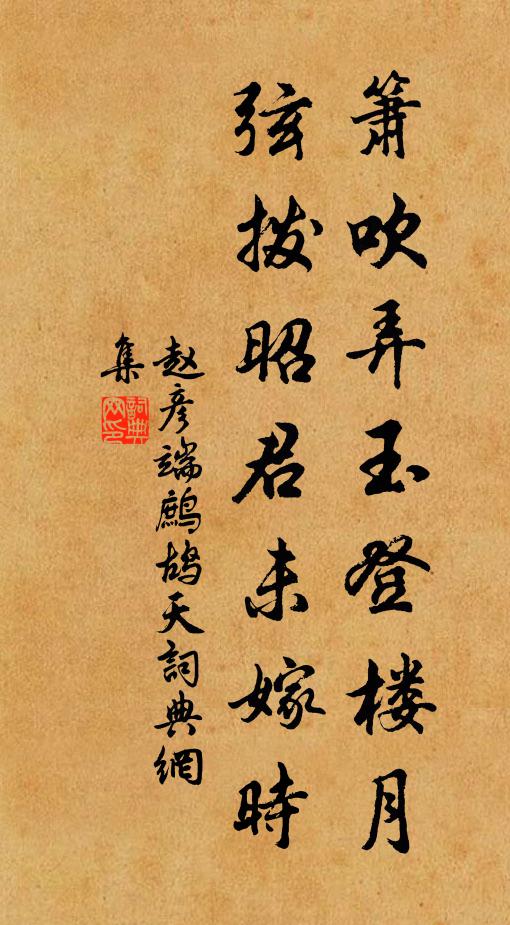 箫吹弄玉登楼月
弦拨昭君未嫁時
赵彦端鷓鴣天詞典網
集
詞典網印